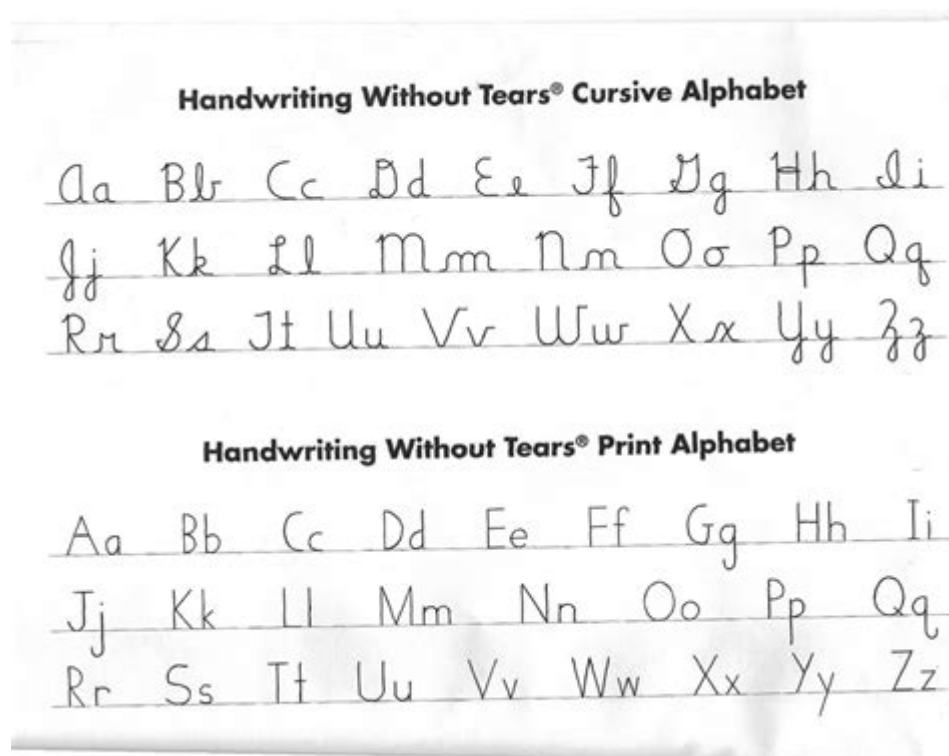 Handwriting Without Tears® Cursive Alphabet
Aa Bb Cc Dd Ee Ff Gg Hh Ii
Jj Kk Ll Mm Nn Oo Pp Qq
Rr Ss Tt Uu Vv Ww Xx Yy Zz
Handwriting Without Tears® Print Alphabet
Aa Bb Cc Dd Ee Ff Gg Hh Ii
Jj Kk Ll Mm Nn Oo Pp Qq
Rr Ss Tt Uu Vv Ww Xx Yy Zz